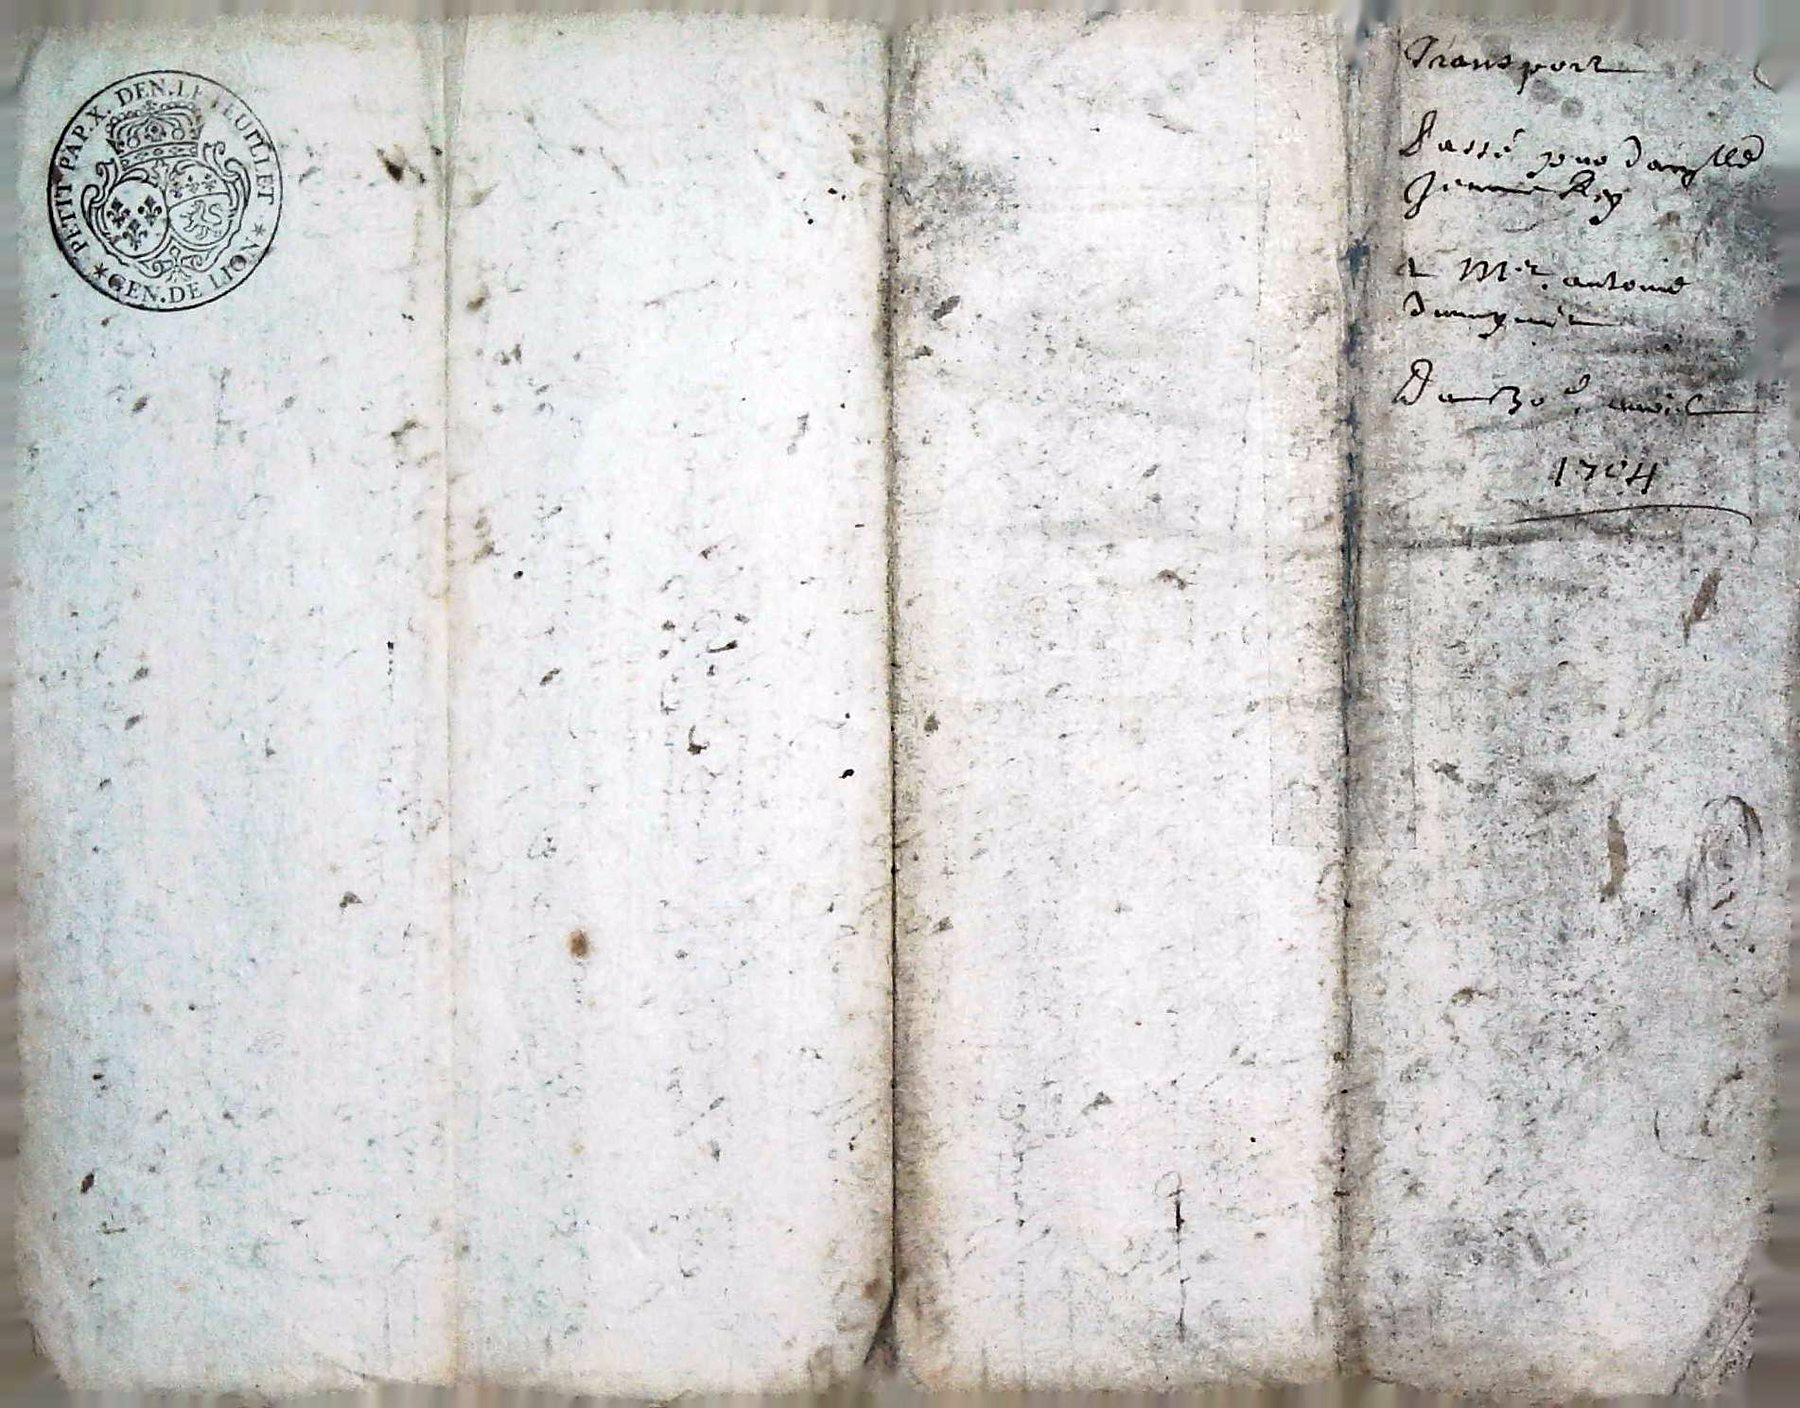 PETIT PAP. X. DEN. LE FEUILLET * GEN. DE LION *
Transport
Passé par damlle
Jeanne Rey
a Mr. antoine
Du 30e. avril
1704